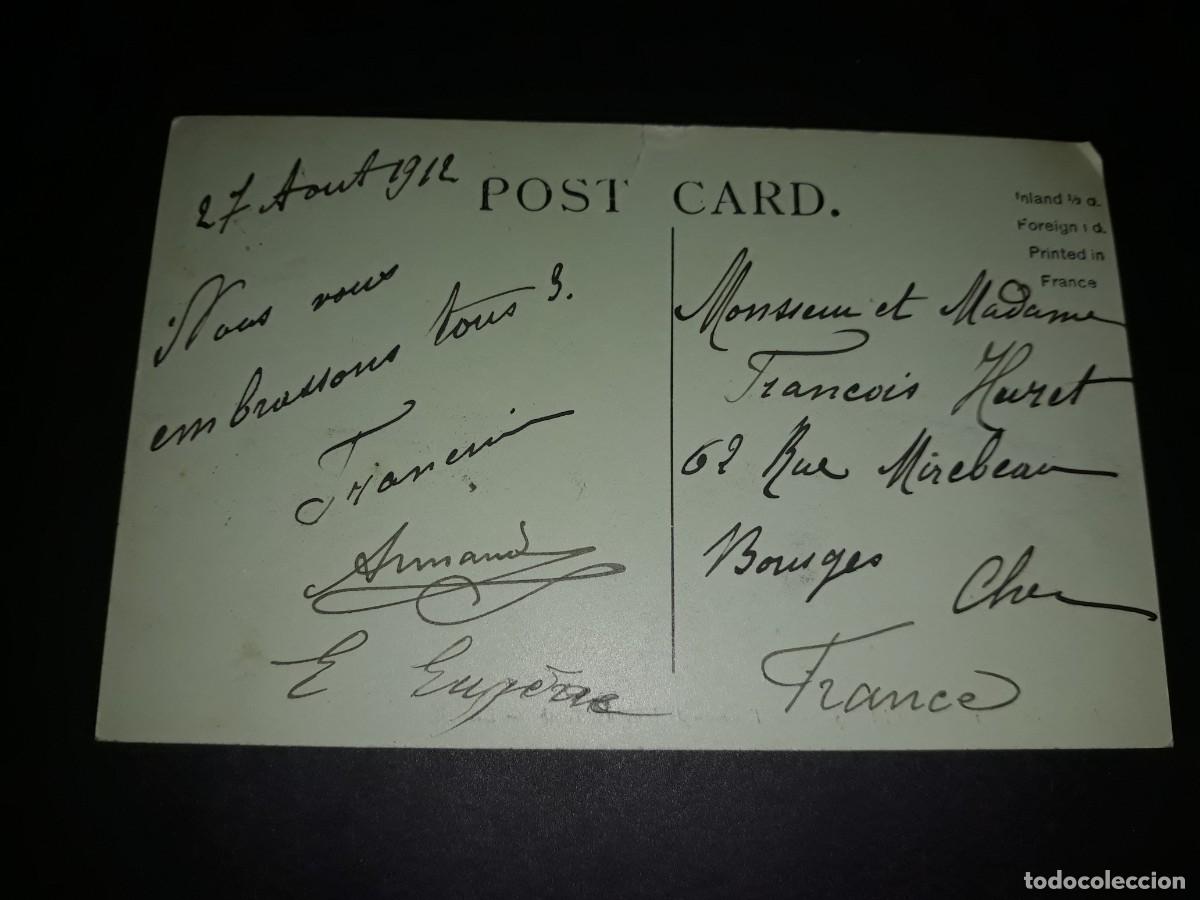 27 Aout 1912
POST CARD.
Inland ½ d.
Foreign 1 d.
Printed in
France
Nous vous
embrassons tous 3.
Armand
E Eugène
Monsieur et Madame
Francois Huret
62 Rue Mirebeau
Bourges Cher
France
todocoleccion